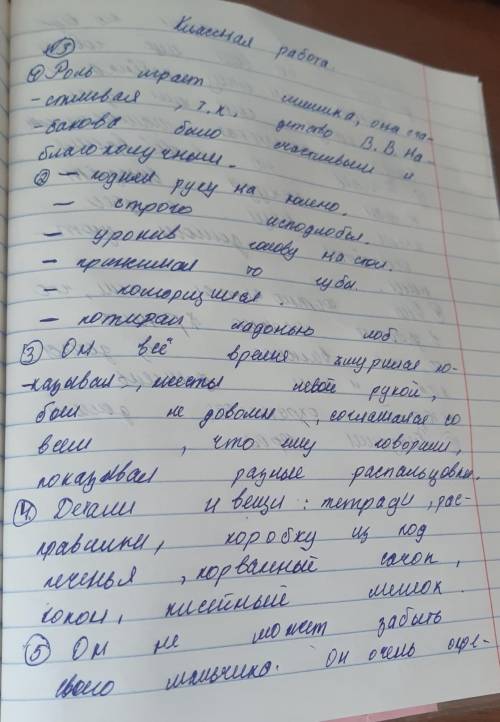 Классная работа.
№3
① Роль играет мимика, она сча-
-стливая, т.к. детство В.В. На-
-бокова было счастливым и
благополучным.
② – поднял руку на колено.
– строго исподлобья.
– уронив голову на стол.
– прижимая то губы.
– поморщился
– потирал ладонью лоб
③ Он всё время жмурился по-
-казывал, жесты левой рукой,
был не доволен, соглашался со
всем, что ему говорили,
показывал разные распальцовки.
④ Детали и вещи: тетради, рас-
правилки, коробку из под
печенья, порванный сачок,
кокон, кисейный мешок.
⑤ Он не может забыть
своего мальчика. Он очень